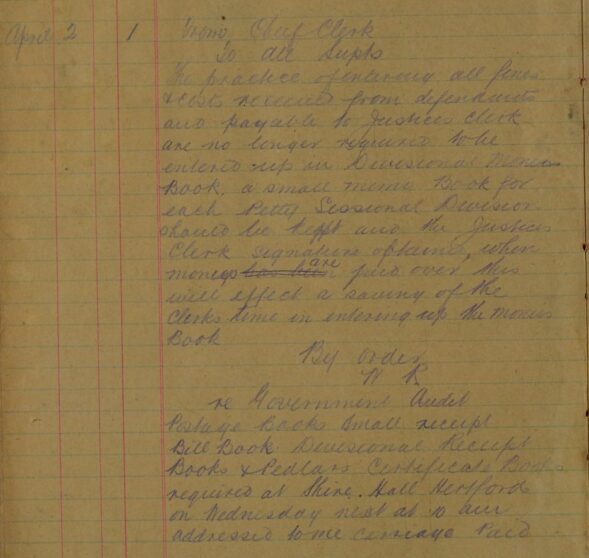 April 2 1 From Chief Clerk
To all Supts
The practice of entering all fines
& costs received from defendants
and payable to Justices Clerk
are no longer required to be
entered up in Divisional Moneys
Book, a small memo Book for
each Petty Sessional Division
should be kept and the Justices
Clerk signature obtained, when
moneys has been are paid over this
will effect a saving of the
Clerks time in entering up the moneys
Book
By order
re Government Audit
Postage Books Small receipt
Bill Book Divisional Receipt
Books & Pedlars Certificate Books
required at Shire Hall Hertford
on Wednesday next at 10 am
addressed to me carriage Paid